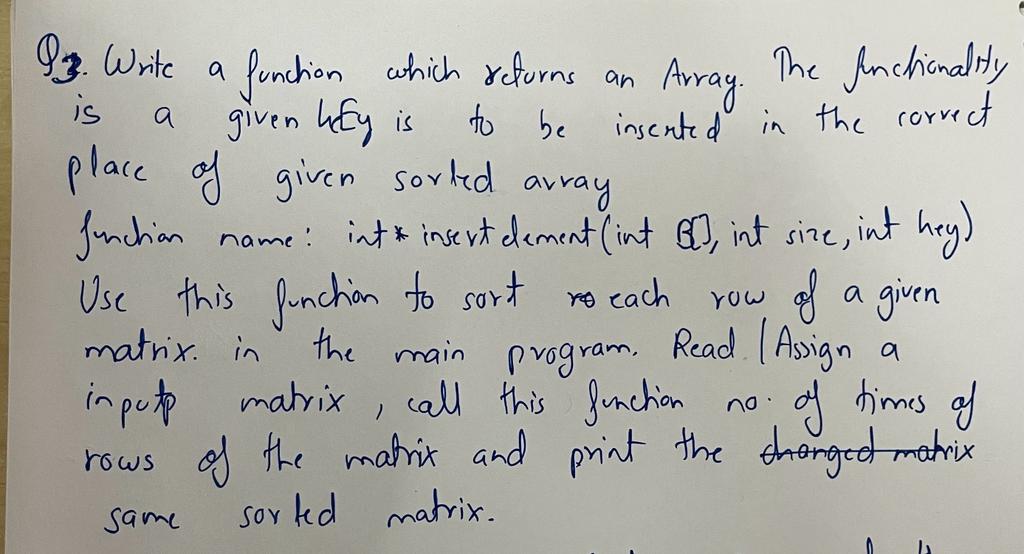 Q3. Write a function which returns an Array. The functionality
is a given kEy is to be inserted in the correct
place of given sorted array
function name: int* insertelement(int B[], int size, int key)
Use this function to sort each row of a given
matrix. in the main program. Read / Assign a
input matrix, call this function no. of times of
rows of the matrix and print the changed matrix
same sorted matrix.